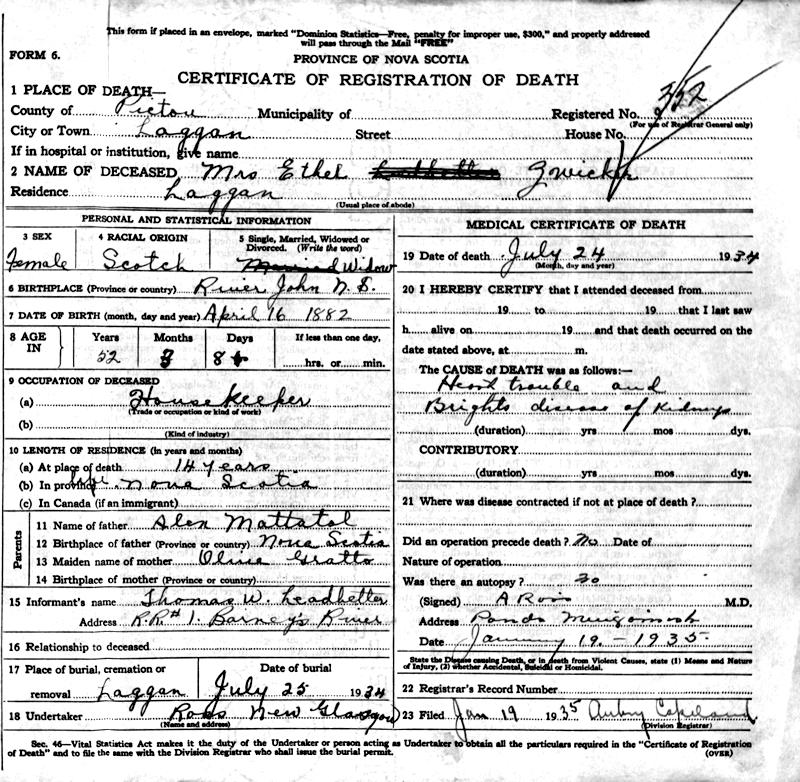 This form if placed in an envelope, marked "Dominion Statistics—Free, penalty for improper use, $300," and properly addressed
will pass through the Mail "FREE"
FORM 6.
PROVINCE OF NOVA SCOTIA
CERTIFICATE OF REGISTRATION OF DEATH
352
1 PLACE OF DEATH—
County of Pictou Municipality of Registered No.
(For use of Registrar General only)
City or Town Laggan Street House No.
If in hospital or institution, give name
2 NAME OF DECEASED Mrs Ethel Leadbetter Zwicker
Residence Laggan
(Usual place of abode)
PERSONAL AND STATISTICAL INFORMATION
3 SEX 4 RACIAL ORIGIN 5 Single, Married, Widowed or Divorced. (Write the word)
Female Scotch Married Widow
6 BIRTHPLACE (Province or country) River John N.S.
7 DATE OF BIRTH (month, day and year) April 16 1882
8 AGE IN Years Months Days If less than one day,
52 3 8 hrs. or min.
9 OCCUPATION OF DECEASED
(a) House Keeper
(Trade or occupation or kind of work)
(b)
(Kind of industry)
10 LENGTH OF RESIDENCE (in years and months)
(a) At place of death 14 years
(b) In province life Nova Scotia
(c) In Canada (if an immigrant)
Parents
11 Name of father Alex Mattatol
12 Birthplace of father (Province or country) Nova Scotia
13 Maiden name of mother Olive Gratto
14 Birthplace of mother (Province or country)
15 Informant's name Thomas W. Leadbetter
Address R.R.# 1. Barney's River
16 Relationship to deceased
17 Place of burial, cremation or Date of burial
removal Laggan July 25 1934
18 Undertaker Ross New Glasgow
(Name and address)
MEDICAL CERTIFICATE OF DEATH
19 Date of death July 24 1934
(Month, day and year)
20 I HEREBY CERTIFY that I attended deceased from
19 to 19 that I last saw
h alive on 19 and that death occurred on the
date stated above, at m.
The CAUSE OF DEATH was as follows:—
Heart trouble and
Brights disease of Kidneys
(duration) yrs mos dys.
CONTRIBUTORY
(duration) yrs mos dys.
21 Where was disease contracted if not at place of death?
Did an operation precede death? No Date of
Nature of operation
Was there an autopsy?
(Signed) A Ross M.D.
Address
Date January 19.-1935
State the Disease causing Death, or in death from Violent Causes, state (1) Means and Nature
of Injury, (2) whether Accidental, Suicidal or Homicidal.
22 Registrar's Record Number
23 Filed Jan 19 1935 Aubry Copeland
(Division Registrar)
Sec. 46—Vital Statistics Act makes it the duty of the Undertaker or person acting as Undertaker to obtain all the particulars required in the "Certificate of Registration
of Death" and to file the same with the Division Registrar who shall issue the burial permit. (OVER)